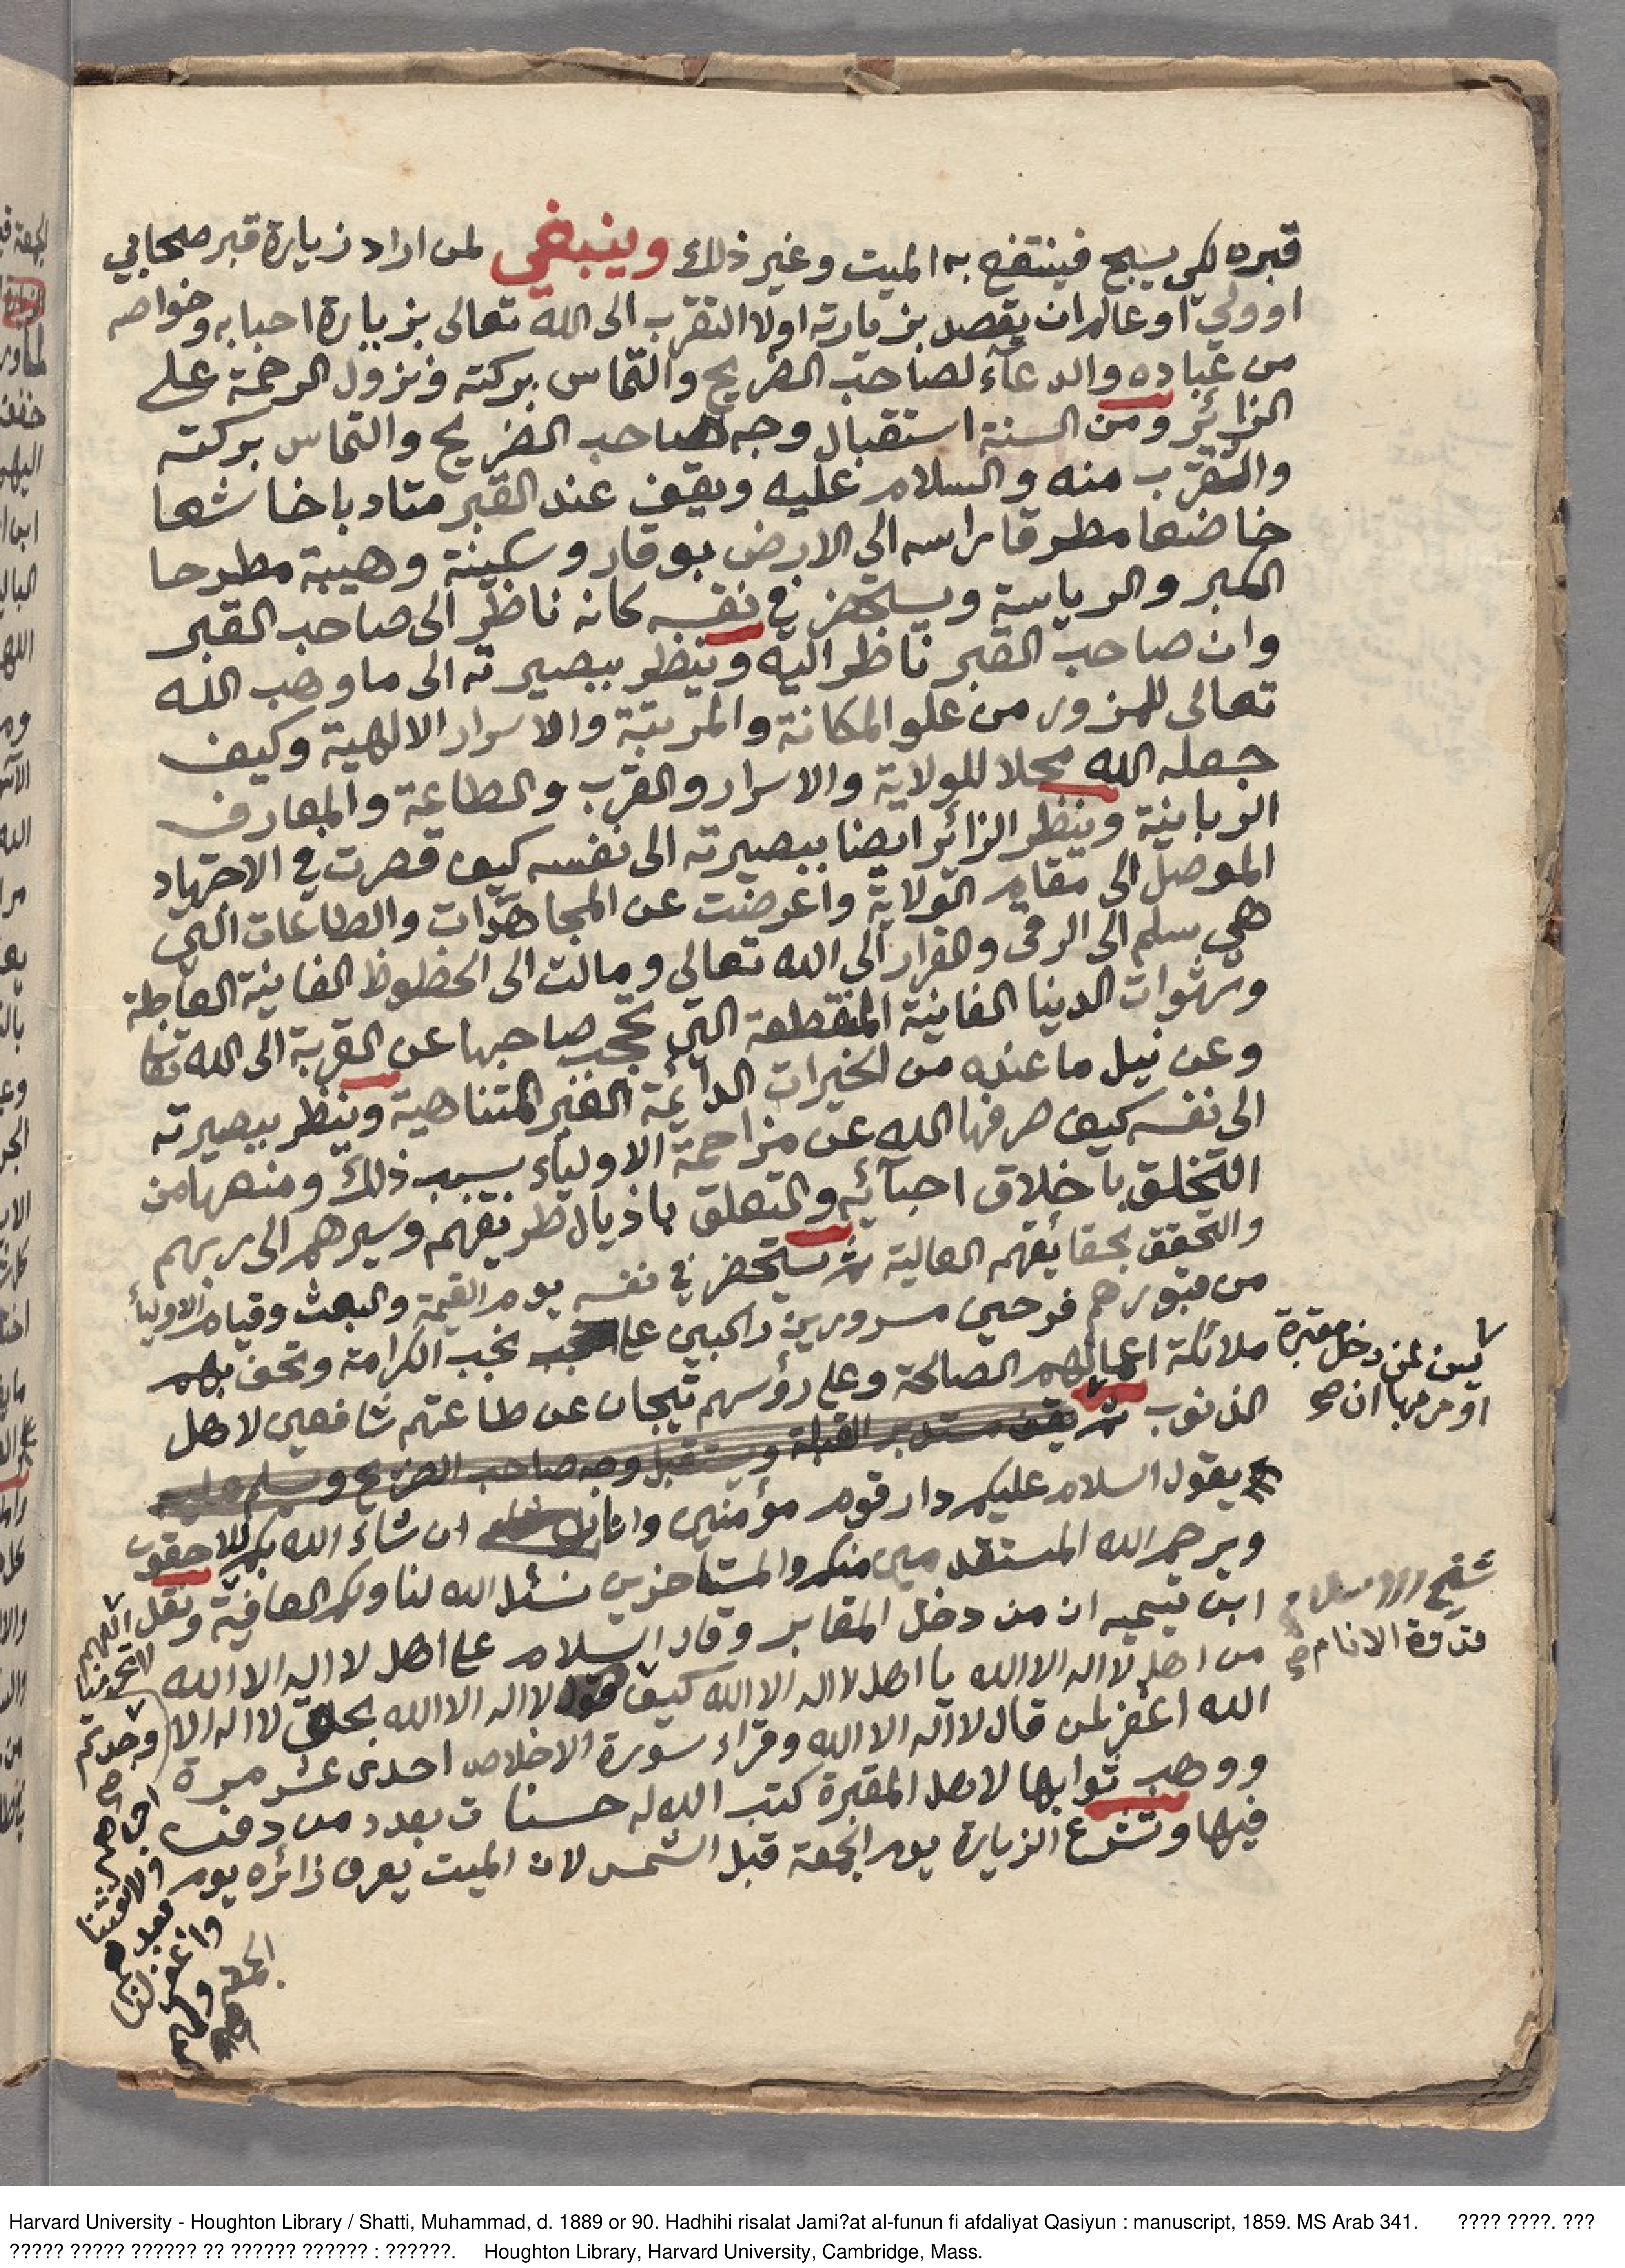 قبره لكي يسبح فينتفع به الميت وغير ذلك وينبغي لمن اراد زيارة قبر صحابي
او ولي او عالم ان يقصد بزيارته اولا التقرب الى الله تعالى بزيارة احبابه وخواصه
من عباده والدعآء لصاحب الضريح والتماس بركته ونزول الرحمة على
الزائر ومن السنة استقبال وجه صاحب الضريح والتماس بركته
والتقرب منه والسلام عليه ويقف عند القبر متادبا خاشعا
خاضعا مطرقا راسه الى الارض بوقار وسكينة وهيبة مطرحا
الكبر والرياسة ويستحضر في نفسه كانه ناظر الى صاحب القبر
وان صاحب القبر ناظر اليه وينظر ببصيرته الى ما وهب الله
تعالى للمزور من علو المكانة والمرتبة والاسرار الالهية وكيف
جعله الله محلا للولاية والاسرار والقرب والطاعة والمعارف
الربانية وينظر الزائر ايضا ببصيرته الى نفسه كيف قصرت في الاجتهاد
الموصل الى مقام الولاية واعرضت عن المجاهدات والطاعات التي
هي سلم الى الرقى والفرار الى الله تعالى ومالت الى الحظوظ الفانية العاطلة
وشهوات الدينا الفانية المنقطعة التي تحجب صاحبها عن القربة الى الله تعالى
وعن نيل ما عنده من الخيرات الدائمة الغير المتناهية وينظر ببصيرته
الى نفسه كيف صرفها الله عن مزاحمة الاولياء بسبب ذلك ومنعها من
التخلق باخلاق احبآئه والتعلق باذيال طريقهم وسيرهم الى ربهم
والتحقق بحقايقهم العالية ثم يستحضر في نفسه يوم القيمة والبعث وقيام الاولياء
من قبورهم فرحين مسرورين راكبين على نجب الكرامة وتحف بهم
ملائكة اعمالهم الصالحة وعلى رؤسهم تيجان عن طاعتهم شافعين لاهل
الذنوب ثم يقف مستدبر القبلة ويستقبل وجه صاحب الضريح ويسلم عليه
يسن لمن دخل مقبرة
او مر بها ان صح
يقول السلام عليكم دار قوم مؤمنين وانا ان شاء الله بكم للاحقون
ويرحم الله المستقدمين منكم والمستاخرين نسئل الله لنا ولكم العافية ونقل
شيخ الاسلام
قدوة الانام صح
ابن تيميه ان من دخل المقابر وقال السلام على اهل لا اله الا الله
من اهل لا اله الا الله يا اهل لا اله الا الله كيف قول لا اله الا الله بحق لا اله الا
الله اغفر لمن قال لا اله الا الله وقراء سورة الاخلاص احدى عشر مرة
ووهب ثوابها لاهل المقبرة كتب الله له حسنات بعدد من دفن
فيها وتشرع الزيارة يوم الجمعة قبل الشمس لان الميت يعرف زائره يوم
الجمعة
اللهم
لا تحرمنا
اجرهم
ولا تفتنا
بعدهم
واغفر لنا
ولهم